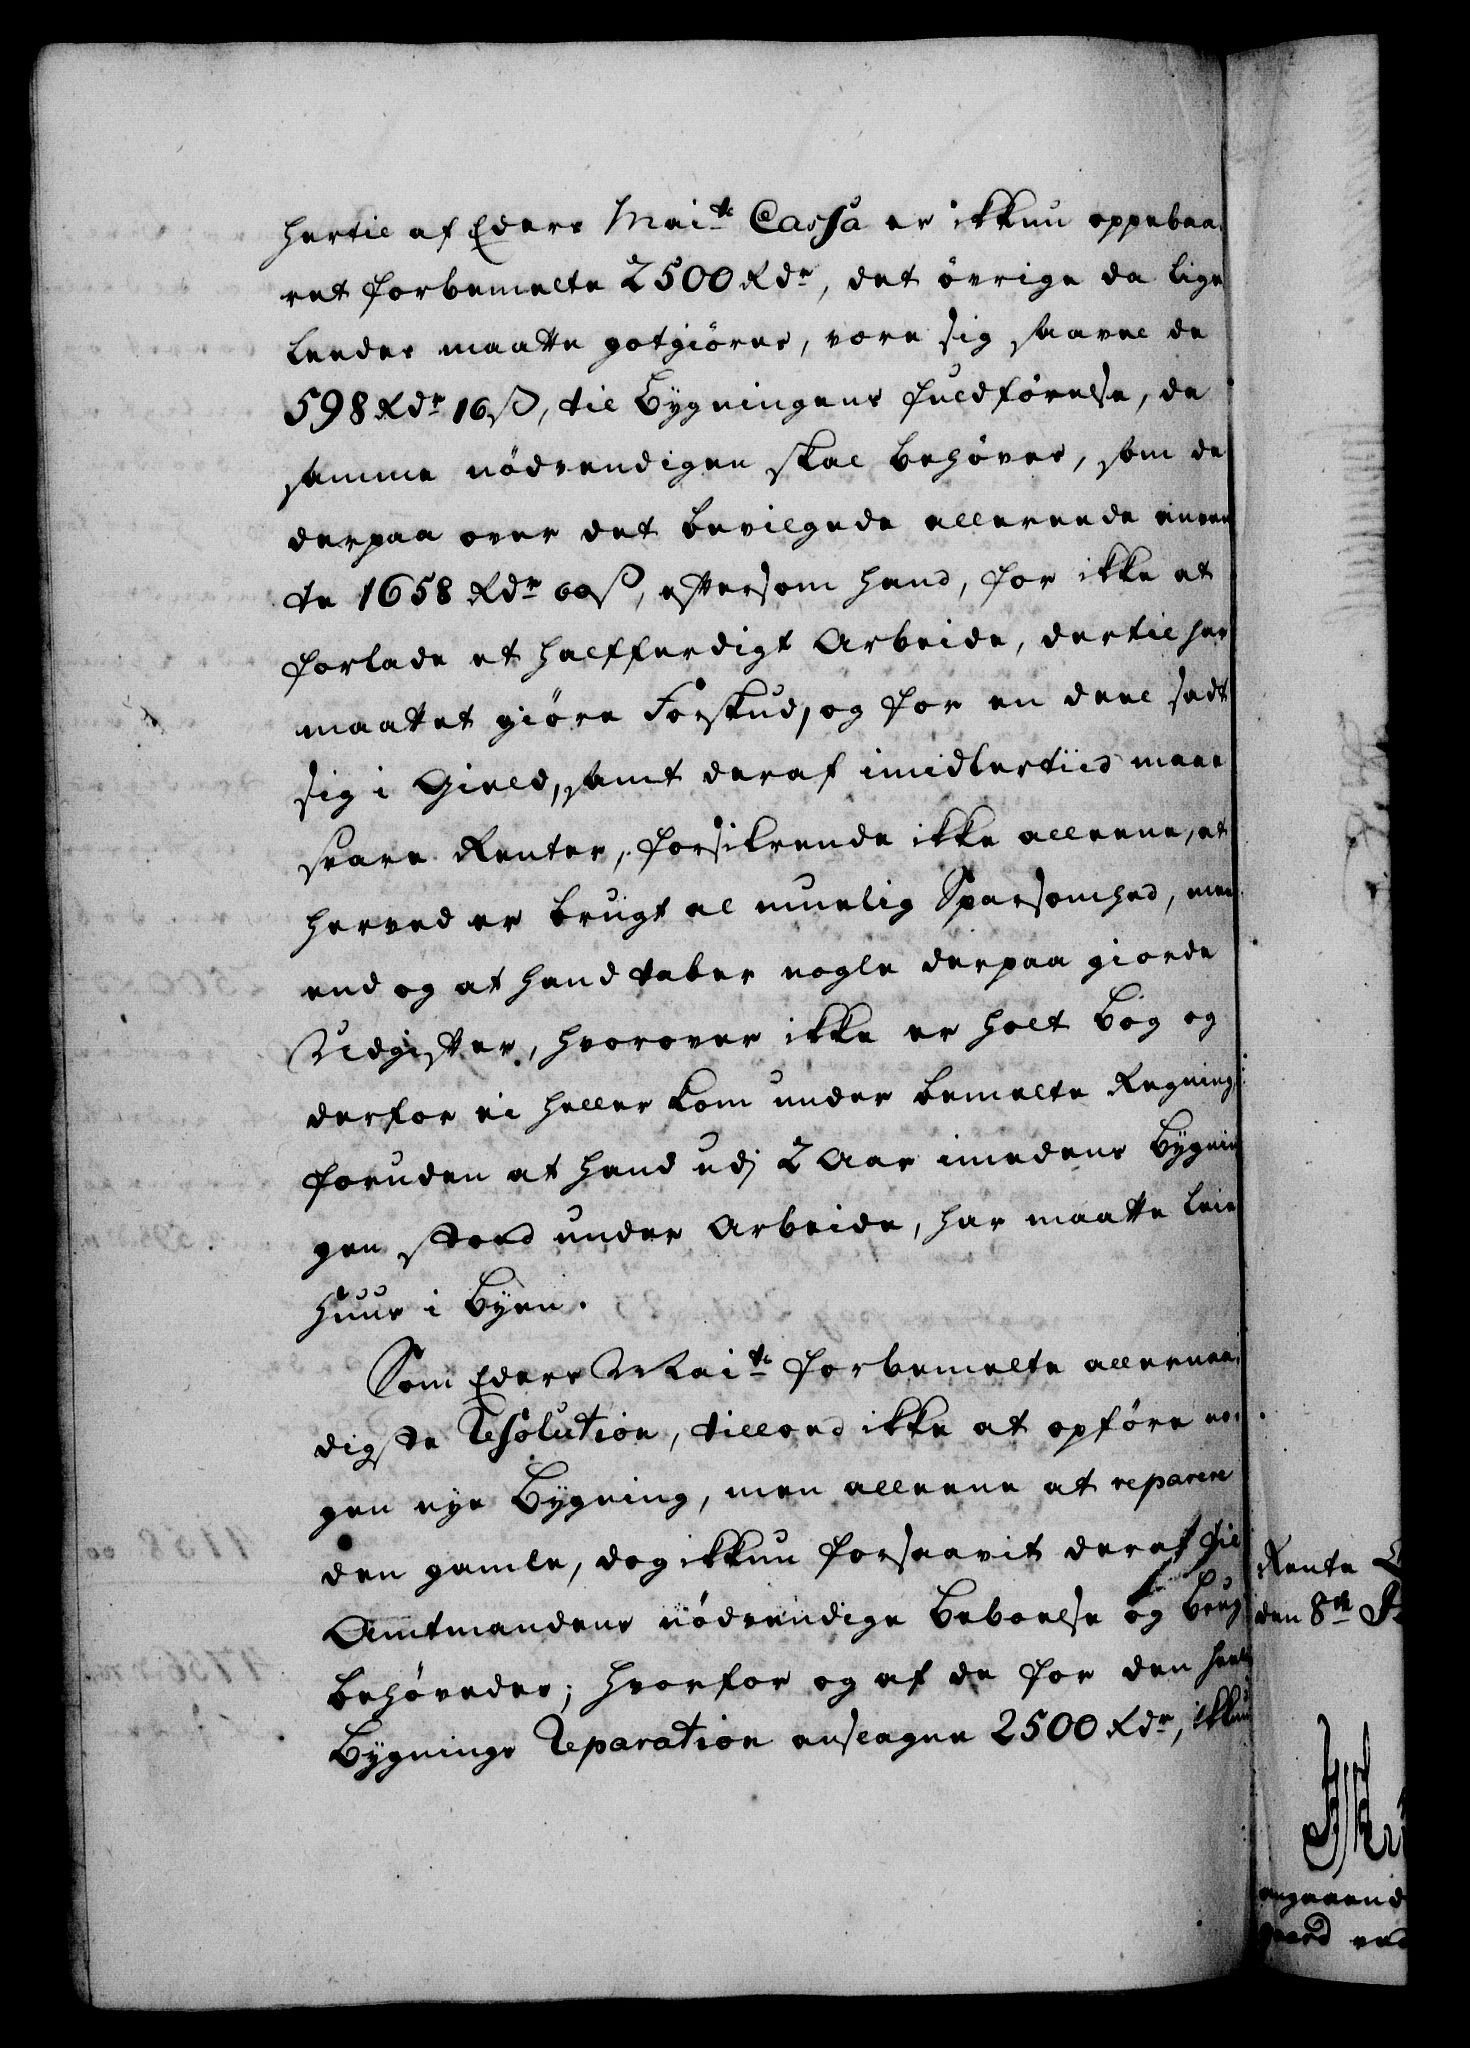 hertil af Eders Mai:te Cassa er ikkun oppebaa-
ret forbemelte 2500 Rdr, det övrige da lige
leedes maatte gotgiöres, være sig saavel de
598 Rdr 16 ß, til Bygningens fuldförelse, da
samme nödvendigen skal behöves, som de
derpaa over det bevilgede allereede anven
te 1658 Rdr 60 ß, eftersom hand, for ikke at
forlade et halfferdigt Arbeide, dertil har
maattet giöre Forskud, og for en deel sadt
sig i Gield, samt deraf imidlertiid maae
svare Renter, forsikrende ikke alleene, at
herved er brugt al muelig Sparsomhed, men
end og at hand taber nogle derpaa giorde
Udgifter, hvorover ikke er holt Bog og
derfor ei heller kom under bemelte Regning
foruden at hand udj 2 Aar imedens Bygnin
gen stoed under Arbeide, har maatte leie
Huus i Byen.
Som Eders Mai:te forbemelte allernaa-
digste Resolution, tillod ikke at opföre no-
gen nye Bygning, men alleene at reparere
den gamle, dog ikkun forsaavit deraf til
Amtmandens nödvendige Beboelse og Brug
behövedes; hvorfor og af de for den heele
Bygnings Reparation anslagne 2500 Rdr, ikkun
Rente
den 8de
angaaende
gaard